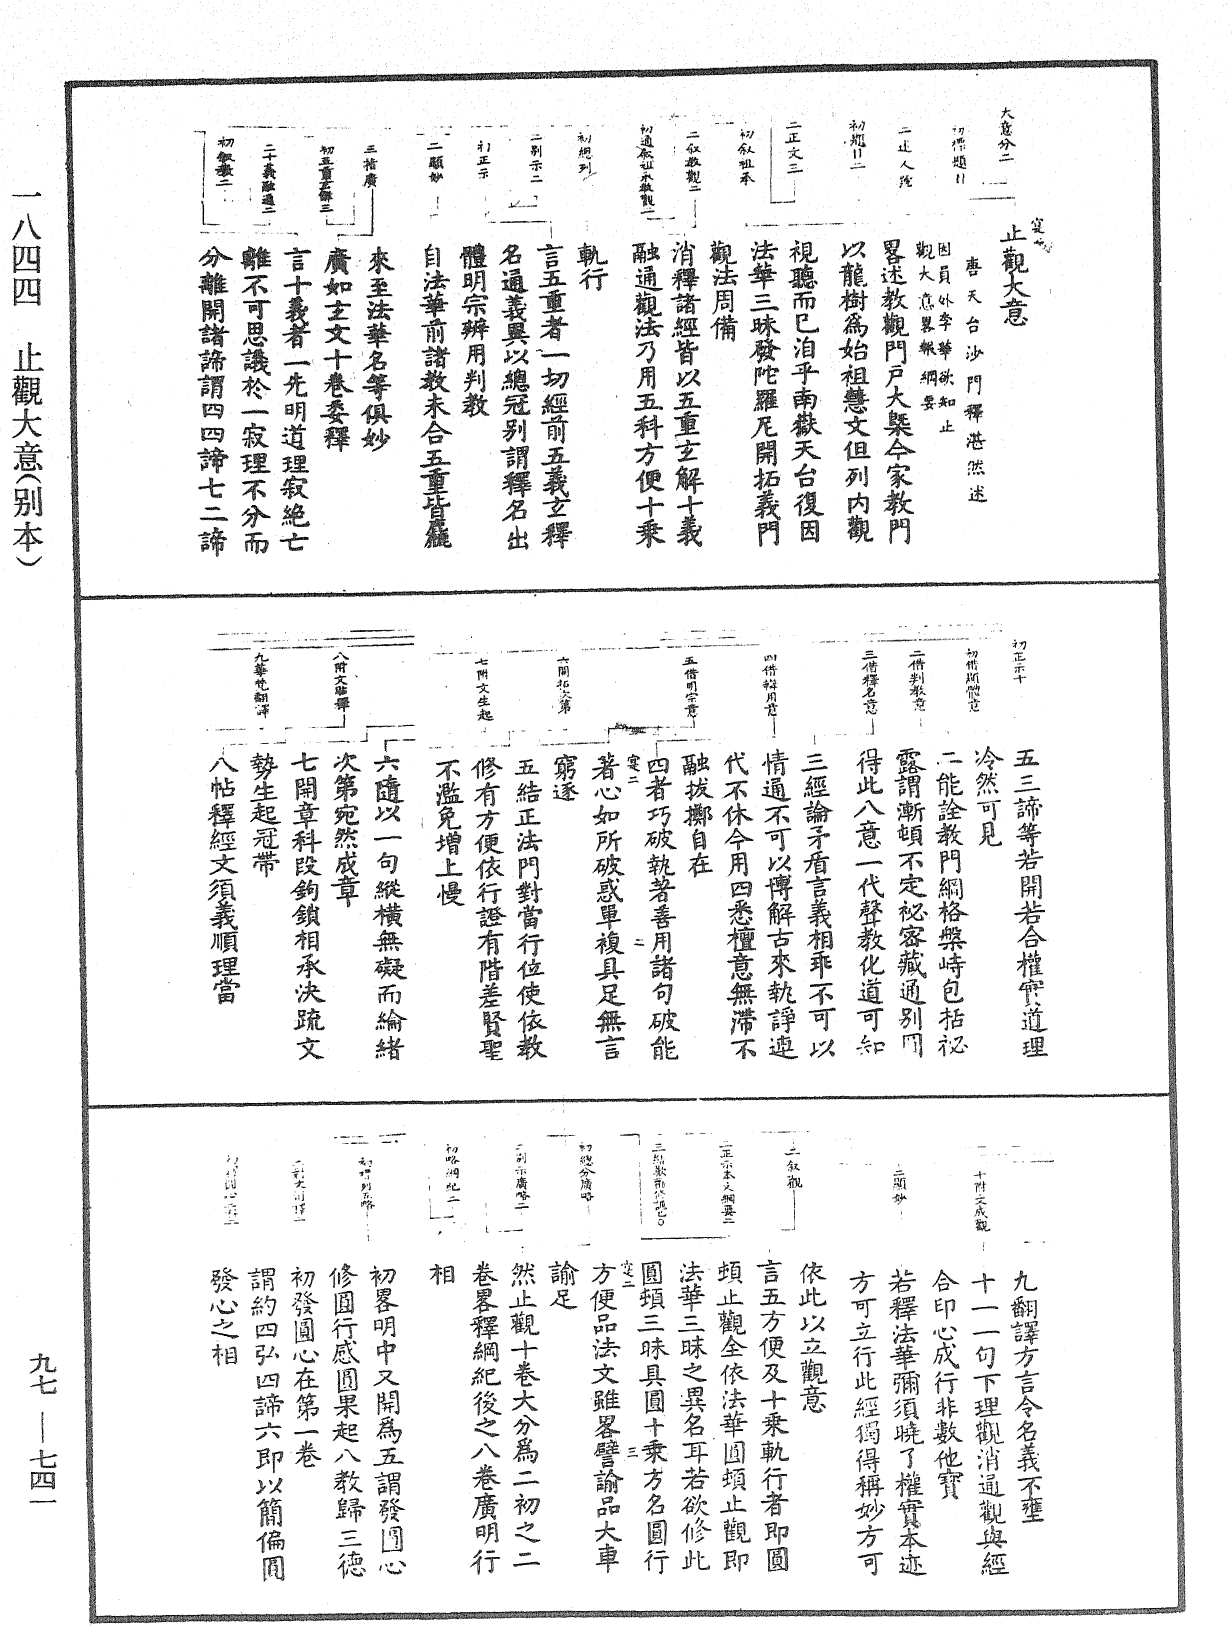 一八四四　止觀大意(別本)
九七—七四一
大意分二
初標題廿
二述人銜
初題廿二
二正文三
初叙祖承
二叙教觀二
初通叙祖承教觀一
初總列
二別示二
初正示
二顯妙
三指廣
初五重玄解三
二十義融通二
初叙教二
止觀大意
唐天台沙門釋湛然述
因員外李華欲知止
觀大意畧報綱要
畧述教觀門戶大槩今家教門
以龍樹爲始祖慧文但列内觀
視聽而已洎乎南嶽天台復因
法華三昧發陀羅尼開拓義門
觀法周備
消釋諸經皆以五重玄解十義
融通觀法乃用五科方便十乘
軌行
言五重者一切經前五義玄釋
名通義異以總冠別謂釋名出
體明宗辨用判教
自法華前諸教未合五重皆麤
來至法華名等俱妙
廣如玄文十卷委釋
言十義者一先明道理寂絶亡
離不可思議於一寂理不分而
分離開諸諦謂四四諦七二諦
初正示十
初借顯體意
二借判教意
三借釋名意
四借辯用意
五借明宗意
六開拓次第
七附文生起
八附文貼釋
九華梵翻譯
五三諦等若開若合權實道理
冷然可見
二能詮教門綱格槃峙包括祕
露謂漸頓不定祕密藏通別圓
得此八意一代聲教化道可知
三經論矛盾言義相乖不可以
情通不可以博解古來執諍連
代不休今用四悉檀意無滯不
融拔擲自在
四者巧破執著善用諸句破能
著心如所破惑單複具足無言
窮逐
五結正法門對當行位使依教
修有方便依行證有階差賢聖
不濫免增上慢
六隨以一句縱横無礙而綸緒
次第宛然成章
七開章科段鉤鎖相承決疏文
勢生起冠帶
八帖釋經文須義順理當
十附文成觀
二顯妙
二叙觀
二正示本文綱要二
初總分廣略
二別示廣略二
初略綱紀二
初標列五略
九翻譯方言令名義不壅
十一一句下理觀消通觀與經
合印心成行非數他寶
若釋法華彌須曉了權實本迹
方可立行此經獨得稱妙方可
依此以立觀意
言五方便及十乘軌行者即圓
頓止觀全依法華圓頓止觀即
法華三昧之異名耳若欲修此
圓頓三昧具圓十乘方名圓行
方便品法文雖畧譬諭品大車
諭足
然止觀十卷大分爲二初之二
卷畧釋綱紀後之八卷廣明行
相
初畧明中又開爲五謂發圓心
修圓行感圓果起八教歸三德
初發圓心在第一卷
謂約四弘四諦六即以簡偏圓
發心之相